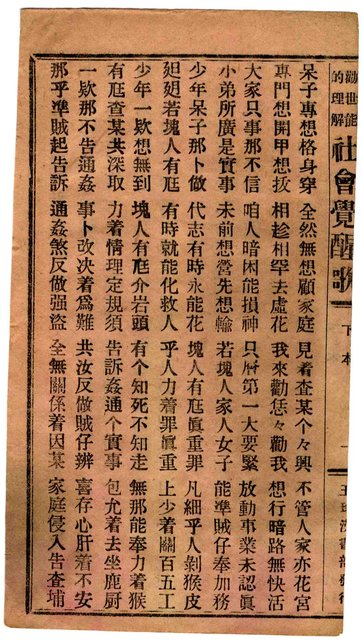 勸世能的理解 社會覺醒歌 下本 一 玉珍漢書部發行
呆子專想格身穿 全然無想顧家庭 見着查某个々興 不管人家亦花宮
專門想開甲想扷 相趁相罕去虛花 我來勸恁々勸我 想行暗路無快活
大家只事那不信 咱人暗困能損神 只層第一大要緊 放動事業未認眞
小弟所廣是實事 未前想嘗先想輸 若塊人家人女子 能準賊仔奉加務
少年呆子那卜做 代志有時永能花 塊人有尫眞重罪 凡細乎人剝猴皮
廻廻若塊人有尫 有時就能化救人 乎人力着罪眞重 上少着關百五工
少年一欵想無到 塊人有尫介岩頭 有个知死不知走 無那能奉力着猴
有尫查某共深取 力着情理定規須 告訴姦通个實事 包允着去坐鹿厨
一欵那不告通姦 事卜改決着爲難 共汝反做賊仔辨 喜存心肝着不安
那乎準賊起告訴 通姦煞反做强盜 全無關係着因某 家庭侵入告查埔